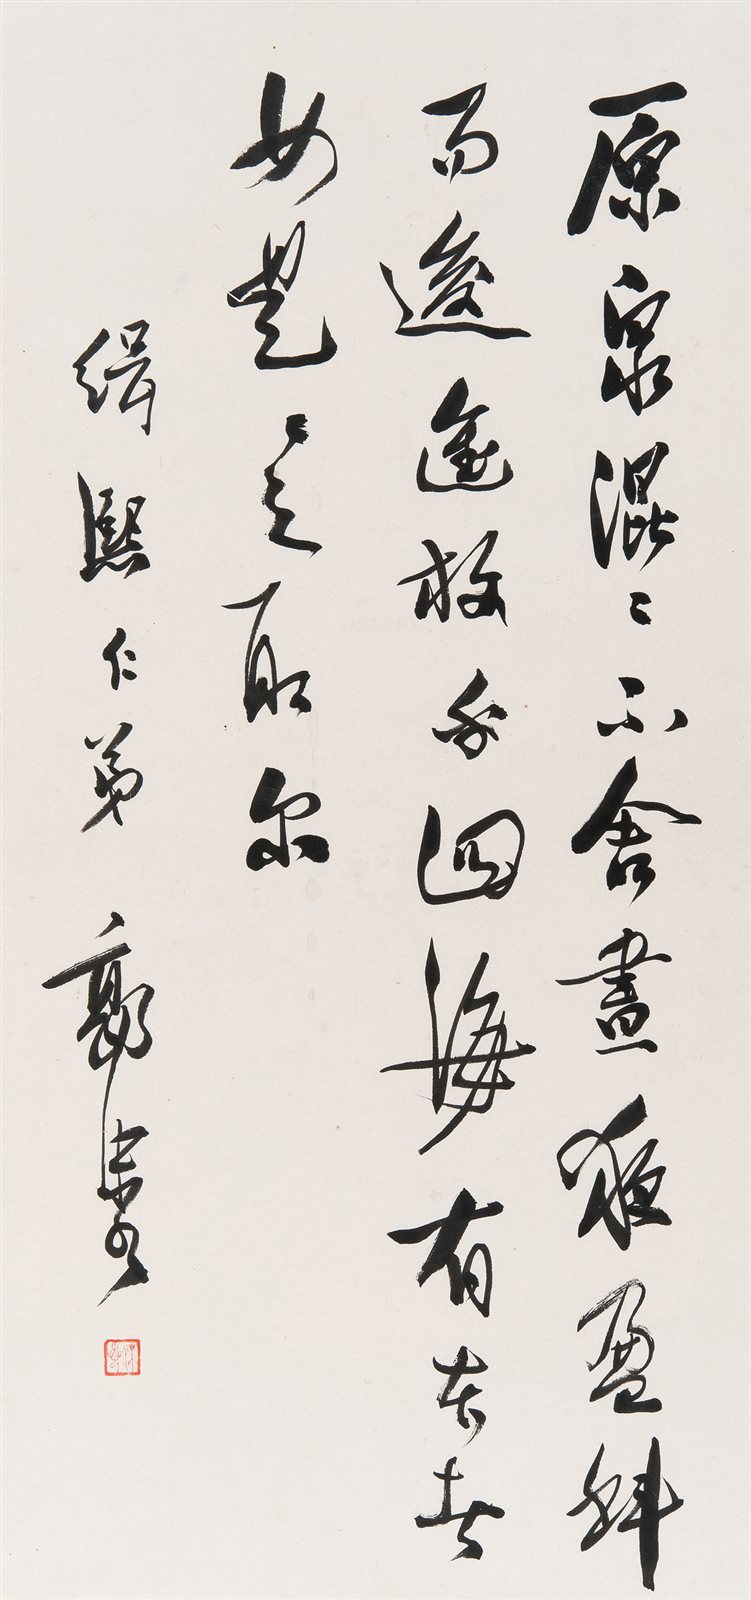 原泉混々不舍晝夜盈科
而後進放乎四海有本者
如是々之取尔
緝熙仁弟 郭沫若